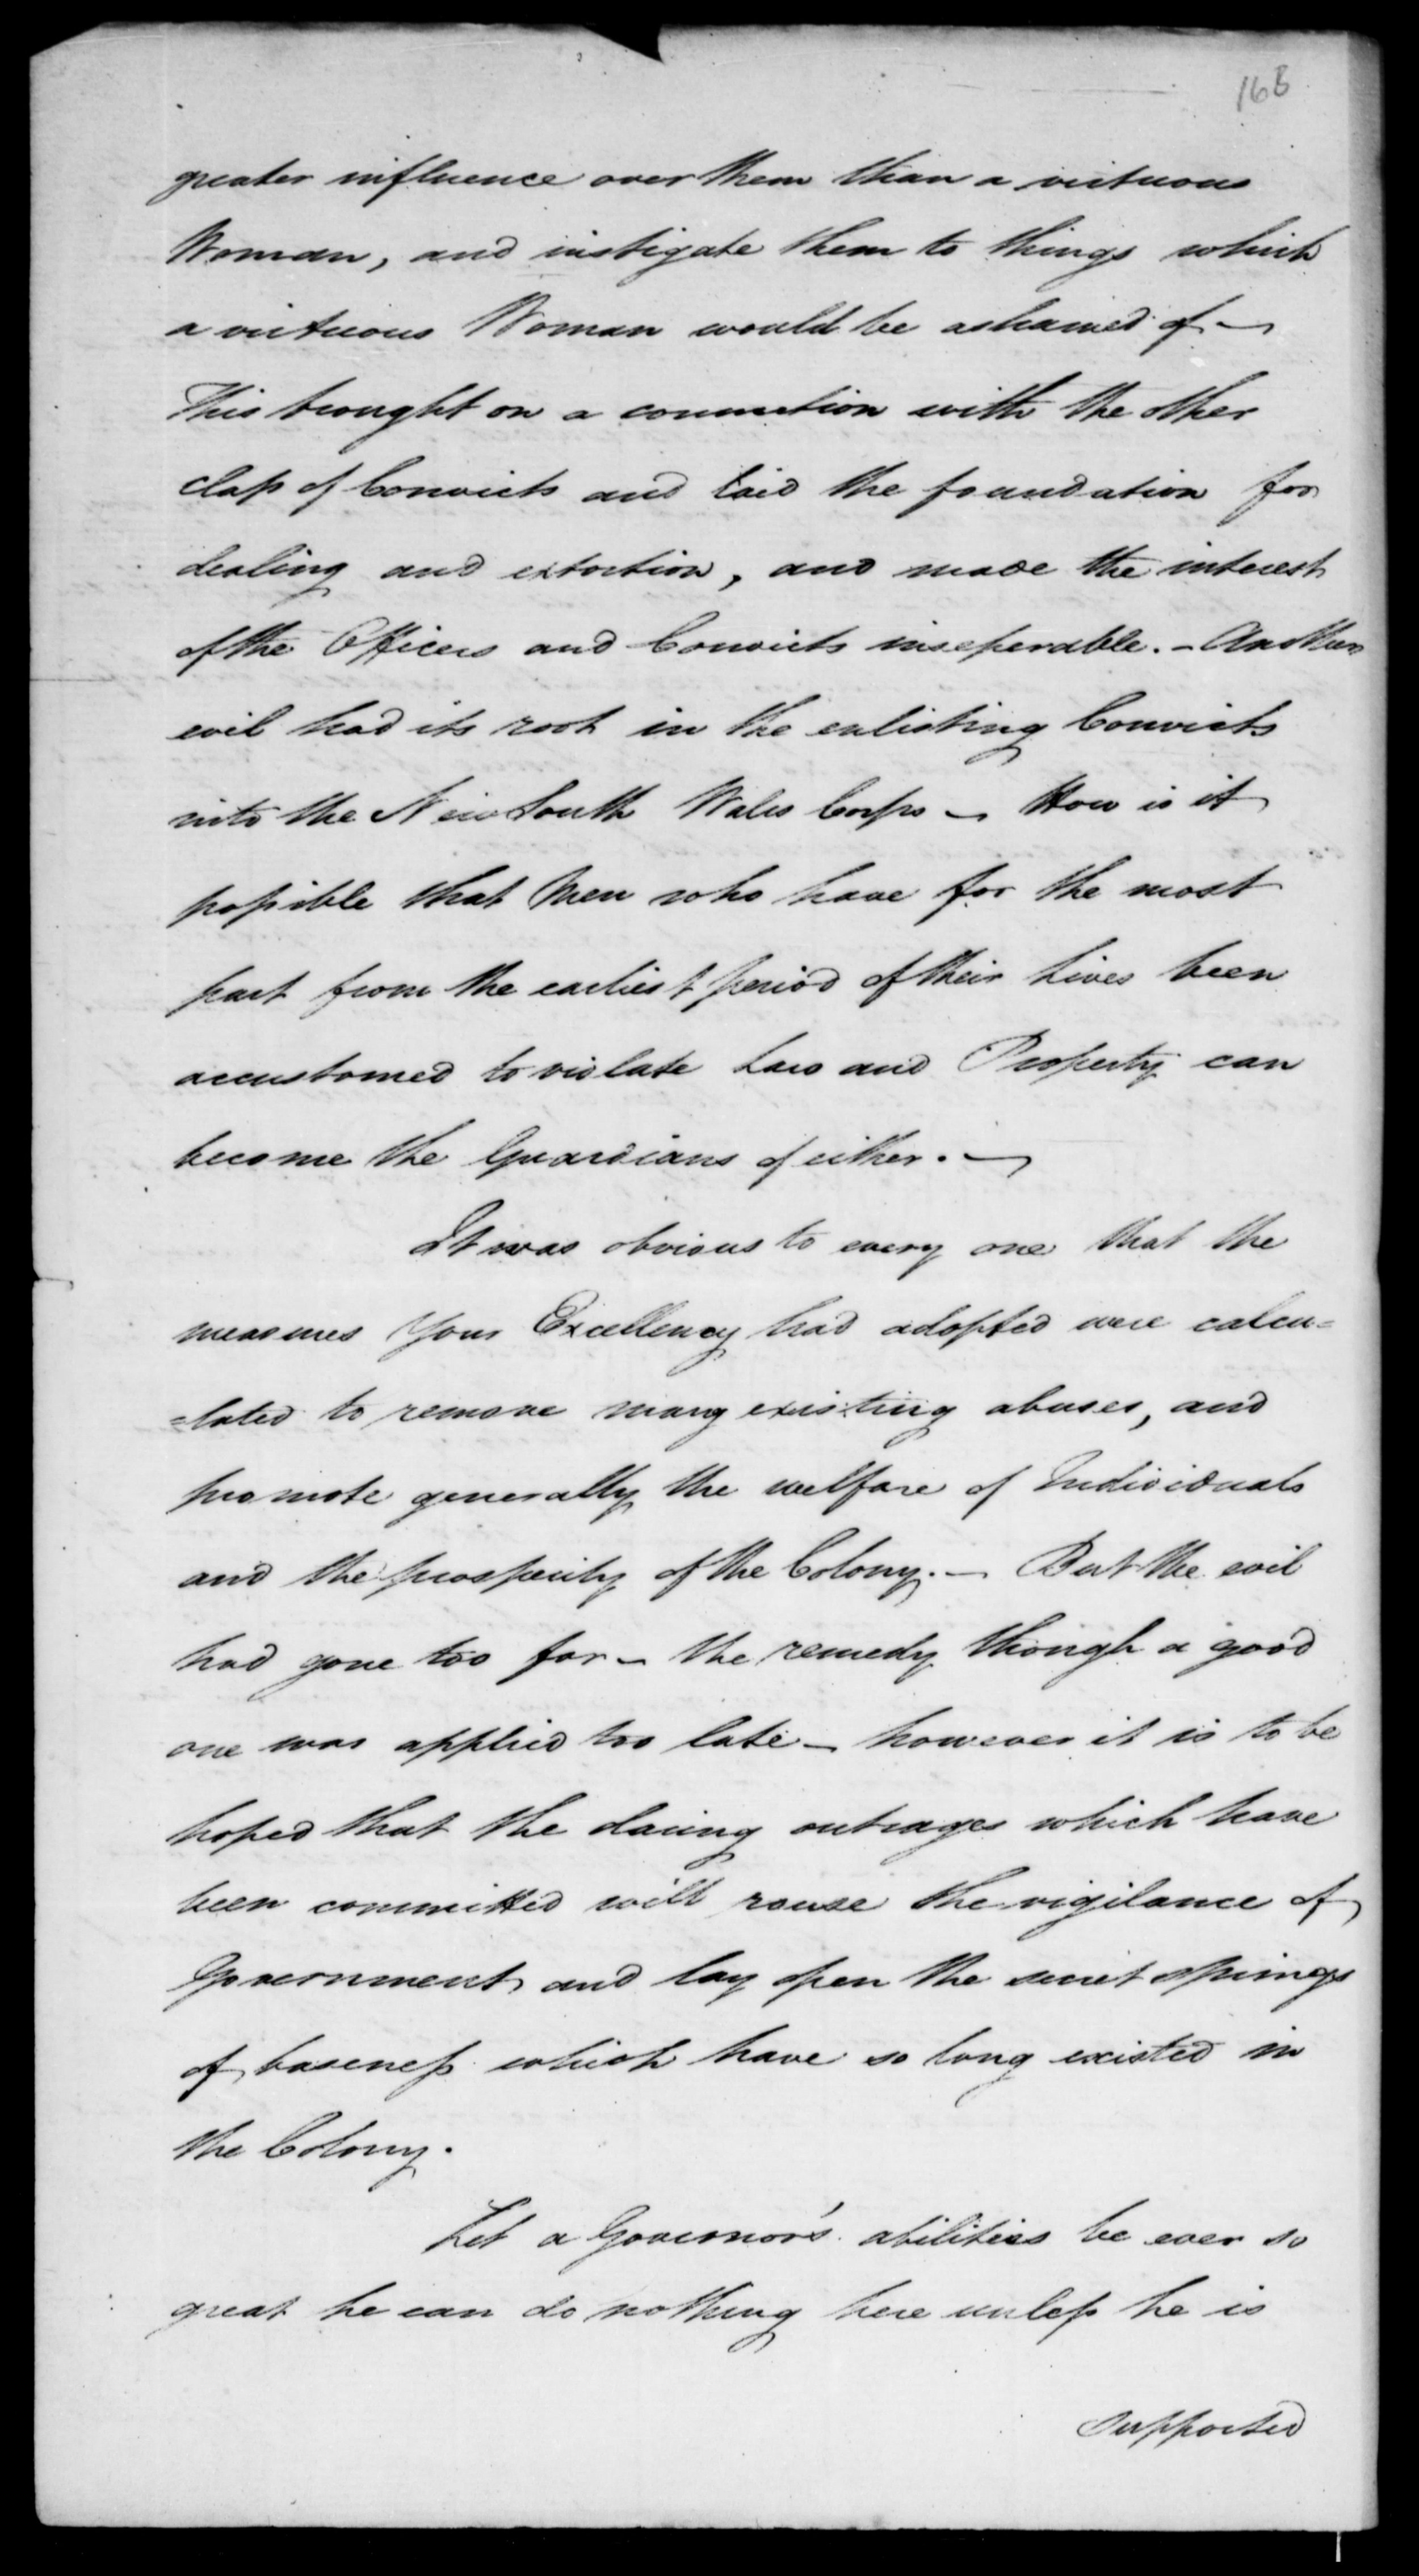 168
greater influence over them than a virtuous
Woman, and instigate them to things which
a virtuous Woman would be ashamed of —
This brought on a connection with the other
class of Convicts and laid the foundation for
dealing and extortion, and made the interest
of the Officers and Convicts inseperable. — Another
evil had its root in the enlisting Convicts
into the New South Wales Corps — How is it
possible that Men who have for the most
part from the earliest period of their Lives been
accustomed to violate Law and Property can
become the Guardians of either. —
It was obvious to every one that the
measures Your Excellency had adopted were calcu=
=lated to remove many existing abuses, and
promote generally the welfare of Individuals
and the prosperity of the Colony. — But the evil
had gone too far — the remedy though a good
one was applied too late — however it is to be
hoped that the daring outrages which have
been committed will rouse the vigilance of
Government and lay open the secret springs
of baseness which have so long existed in
the Colony.
Let a Governor's abilities be ever so
great he can do nothing here unless he is
supported